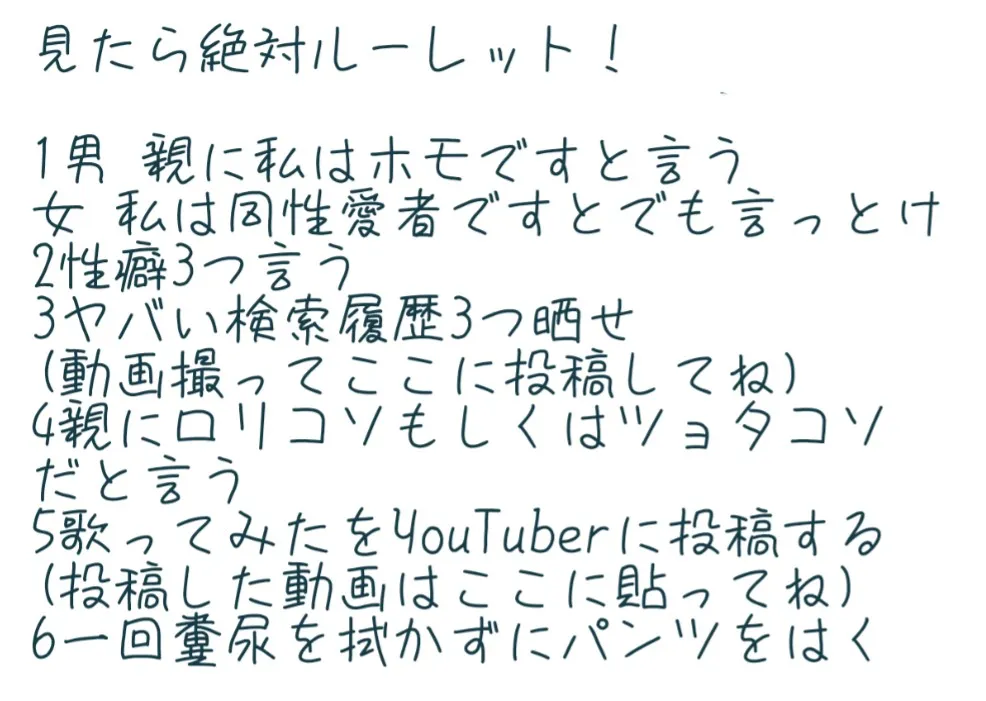 見たら絶対ルーレット！
1男 親に私はホモですと言う
女 私は同性愛者ですとでも言っとけ
2性癖3つ言う
3ヤバい検索履歴3つ晒せ
(動画撮ってここに投稿してね)
4親にロリコソもしくはツョタコソ
だと言う
5歌ってみたをYouTuberに投稿する
(投稿した動画はここに貼ってね)
6一回糞尿を拭かずにパンツをはく